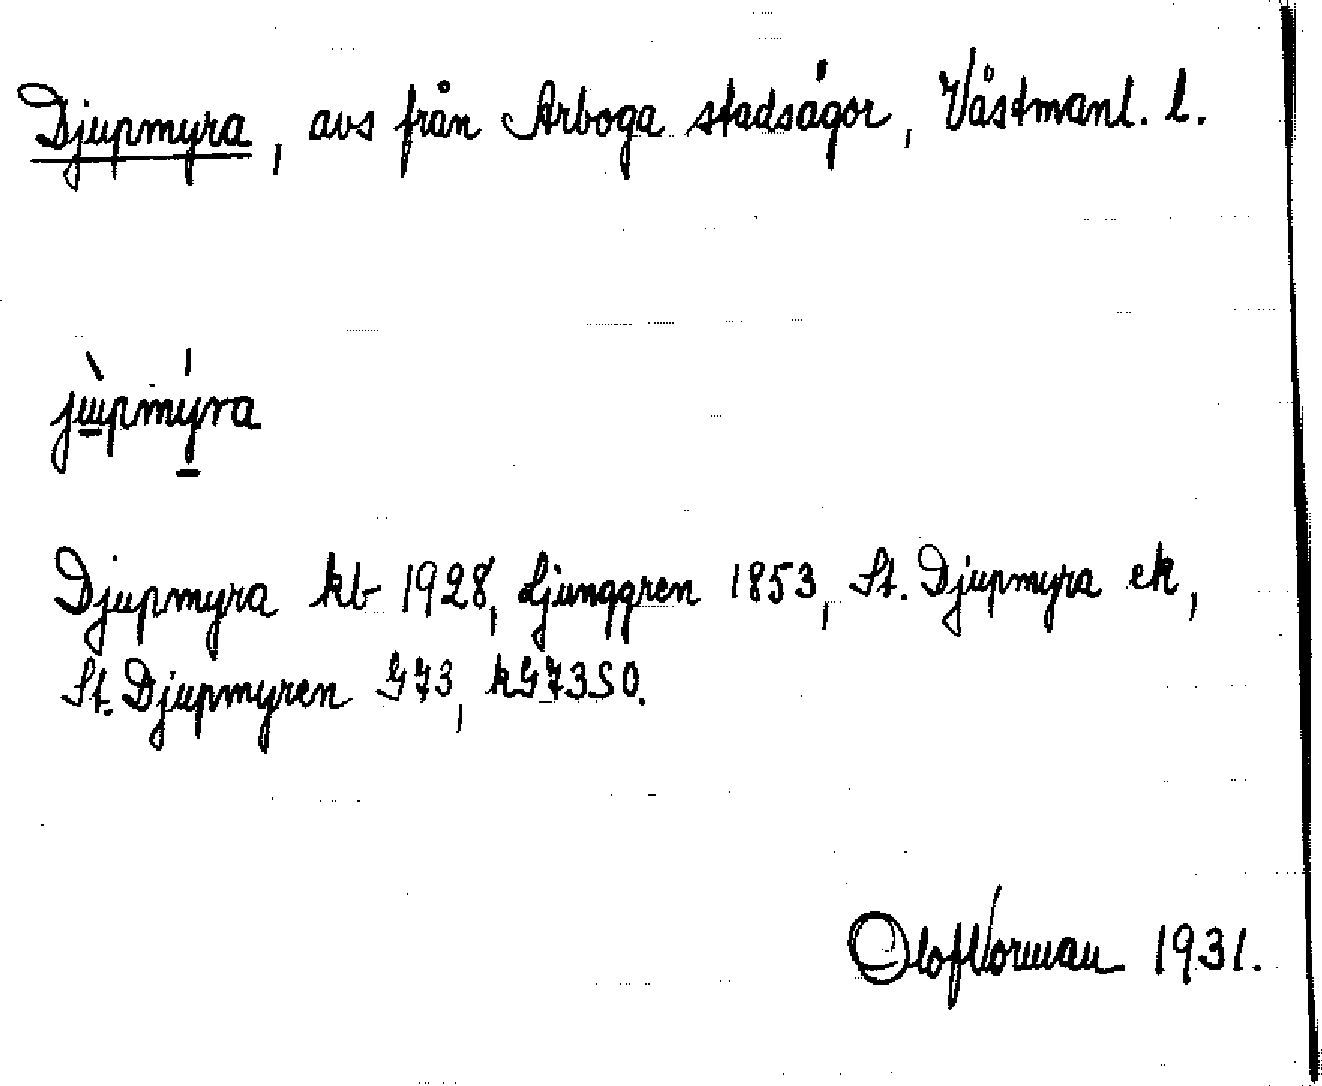 Djupmyra, avs från Arboga stadsägor, Västmanl. l.
jùpmýra
Djupmyra kb 1928, Ljunggren 1853, St. Djupmyra ek,
St. Djupmyren G73, kG73SO.
Olof Norman 1931.